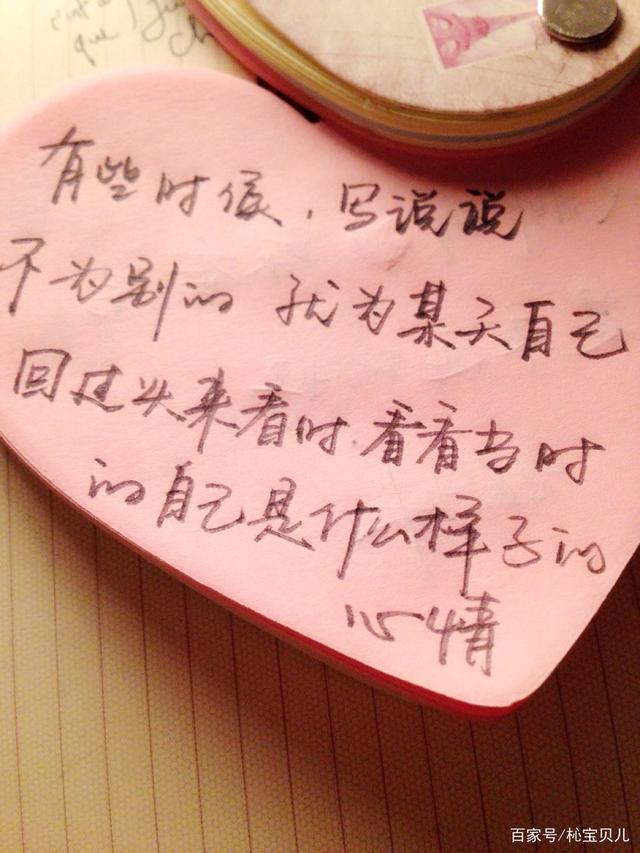 有些时候,写说说
不为别的 就为某天自己
回过头来看时 看看当时
的自己是什么样子的
心情
百家号/松宝贝儿